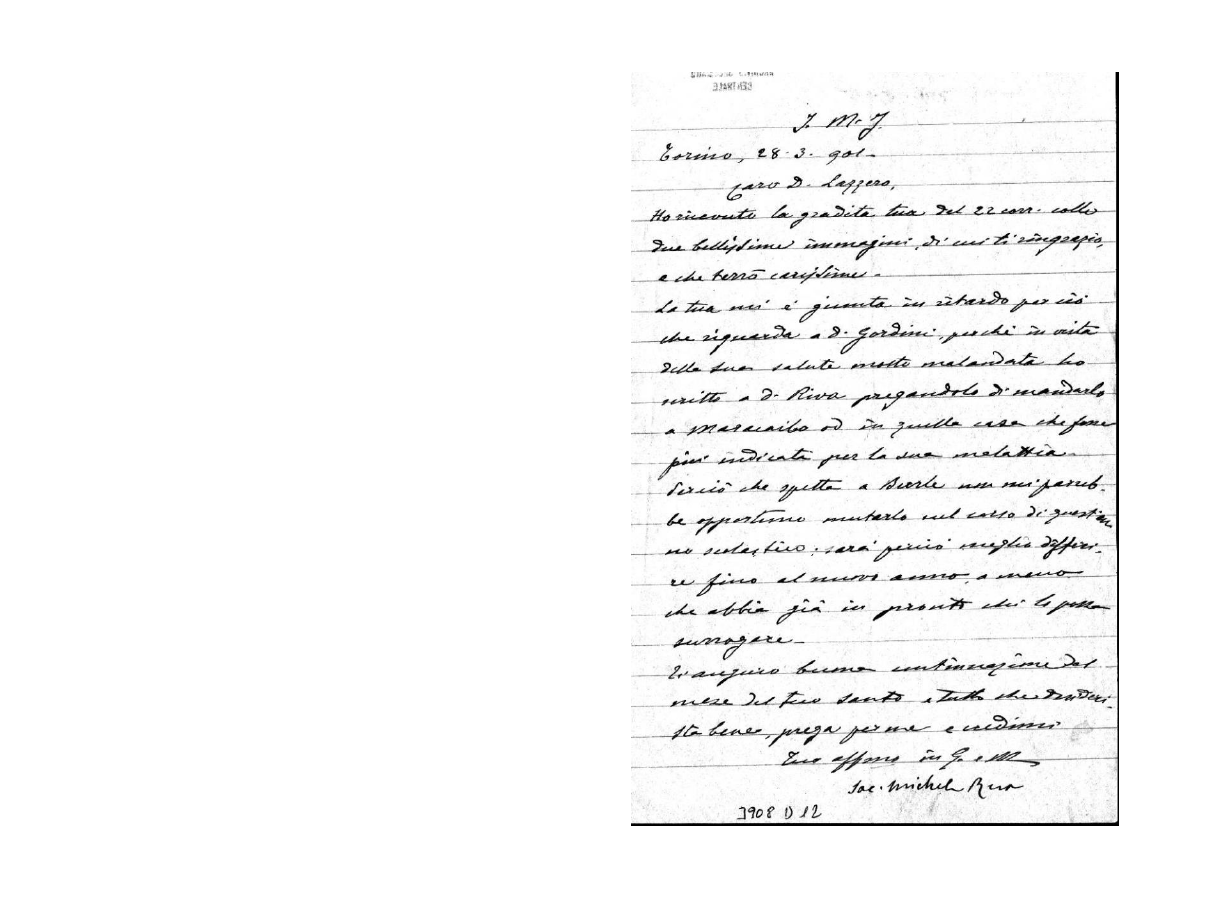 CENTRALE
J. M. J.
Torino, 28. 3. 901.
Caro D. Lazzero,
Ho ricevuto la gradita tua del 22 corr. colle
due bellissime immagini, di cui ti ringrazio,
e che terrò carissime.
La tua mi è giunta in ritardo per ciò
che riguarda a D. Gordini, perchè in vista
della sua salute molto malandata ho
scritto a D. Riva pregandolo di mandarlo
a Maracaibo od in quella casa che fosse
più indicata per la sua malattia.
Per ciò che spetta a non mi pareb-
be opportuno mutarlo nel corso di quest'an-
no scolastico; sarà perciò meglio differi-
re fino al nuovo anno, a meno
che abbia già in pronto chi lo possa
surrogare.
Ti auguro buona continuazione del
mese del tuo santo e tutto che desideri.
Sta bene, prega per me e credimi
Tuo affmo in G. e M.
Sac. Michele Rua
3908 D 12